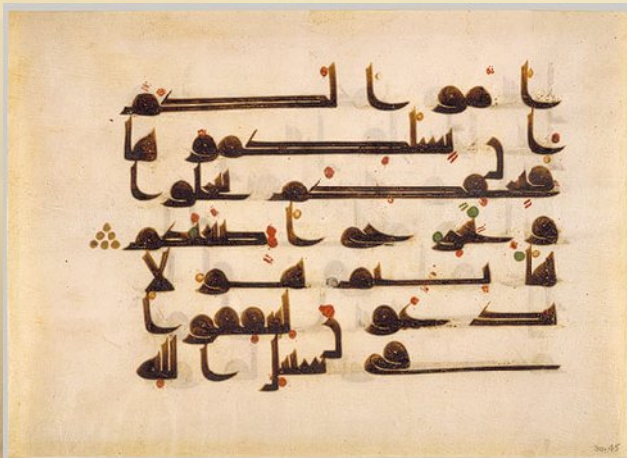 اموالكم
ان يسلكموها
فيحفكم تبخلوا
ويخرج اضغنكم
هانتم هولا
تدعون لتنفقوا
في سبيل الله
30.45